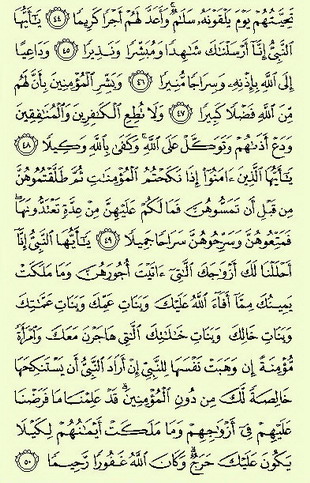 تَحِيَّتُهُمْ يَوْمَ يَلْقَوْنَهُۥ سَلَٰمٌ ۚ وَأَعَدَّ لَهُمْ أَجْرًا كَرِيمًا ٤٤ يَٰٓأَيُّهَا
ٱلنَّبِىُّ إِنَّآ أَرْسَلْنَٰكَ شَٰهِدًا وَمُبَشِّرًا وَنَذِيرًا ٤٥ وَدَاعِيًا
إِلَى ٱللَّهِ بِإِذْنِهِۦ وَسِرَاجًا مُّنِيرًا ٤٦ وَبَشِّرِ ٱلْمُؤْمِنِينَ بِأَنَّ لَهُم
مِّنَ ٱللَّهِ فَضْلًا كَبِيرًا ٤٧ وَلَا تُطِعِ ٱلْكَٰفِرِينَ وَٱلْمُنَٰفِقِينَ
وَدَعْ أَذَىٰهُمْ وَتَوَكَّلْ عَلَى ٱللَّهِ ۚ وَكَفَىٰ بِٱللَّهِ وَكِيلًا ٤٨
يَٰٓأَيُّهَا ٱلَّذِينَ ءَامَنُوٓا۟ إِذَا نَكَحْتُمُ ٱلْمُؤْمِنَٰتِ ثُمَّ طَلَّقْتُمُوهُنَّ
مِن قَبْلِ أَن تَمَسُّوهُنَّ فَمَا لَكُمْ عَلَيْهِنَّ مِنْ عِدَّةٍ تَعْتَدُّونَهَا ۖ
فَمَتِّعُوهُنَّ وَسَرِّحُوهُنَّ سَرَاحًا جَمِيلًا ٤٩ يَٰٓأَيُّهَا ٱلنَّبِىُّ إِنَّآ
أَحْلَلْنَا لَكَ أَزْوَٰجَكَ ٱلَّٰتِىٓ ءَاتَيْتَ أُجُورَهُنَّ وَمَا مَلَكَتْ
يَمِينُكَ مِمَّآ أَفَآءَ ٱللَّهُ عَلَيْكَ وَبَنَاتِ عَمِّكَ وَبَنَاتِ عَمَّٰتِكَ
وَبَنَاتِ خَالِكَ وَبَنَاتِ خَٰلَٰتِكَ ٱلَّٰتِى هَاجَرْنَ مَعَكَ وَٱمْرَأَةً
مُّؤْمِنَةً إِن وَهَبَتْ نَفْسَهَا لِلنَّبِىِّ إِنْ أَرَادَ ٱلنَّبِىُّ أَن يَسْتَنكِحَهَا
خَالِصَةً لَّكَ مِن دُونِ ٱلْمُؤْمِنِينَ ۗ قَدْ عَلِمْنَا مَا فَرَضْنَا
عَلَيْهِمْ فِىٓ أَزْوَٰجِهِمْ وَمَا مَلَكَتْ أَيْمَٰنُهُمْ لِكَيْلَا
يَكُونَ عَلَيْكَ حَرَجٌ ۗ وَكَانَ ٱللَّهُ غَفُورًا رَّحِيمًا ٥٠